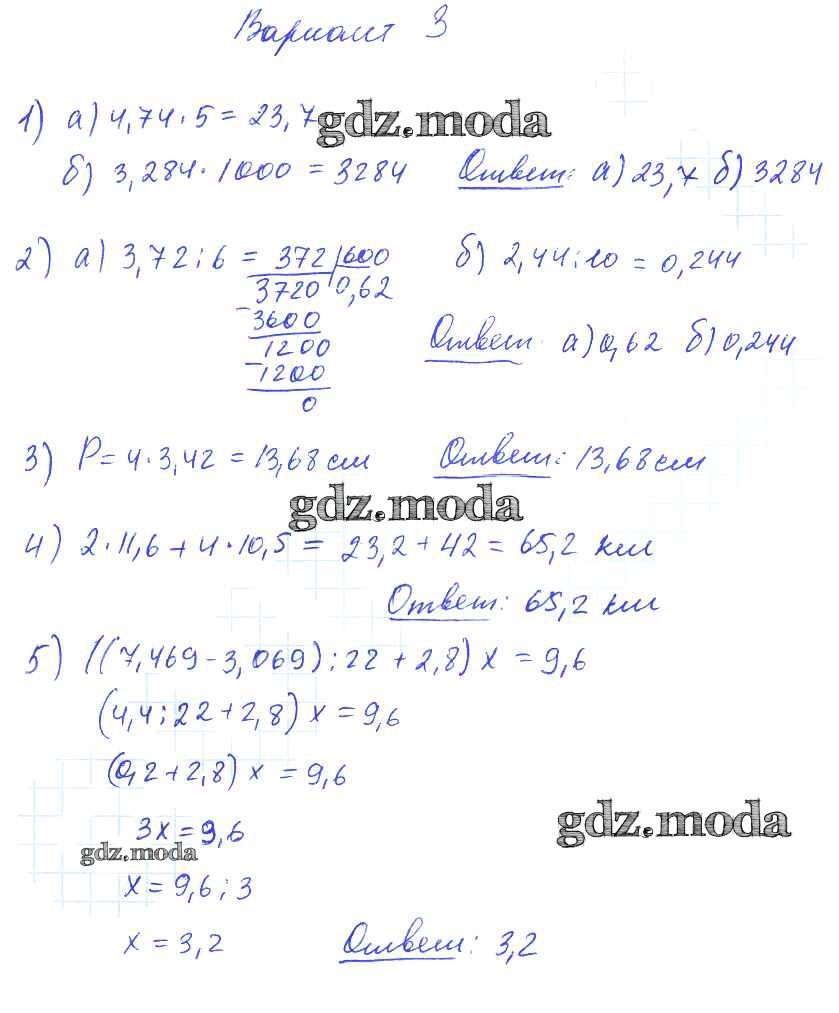 Вариант 3
1) а) 4,74 · 5 = 23,7 gdz.moda
б) 3,284 · 1000 = 3284 Ответ: а) 23,7 б) 3284
2) а) 3,72 : 6 = 372 600 б) 2,44 : 10 = 0,244
3720 0,62
- 3600
1200 Ответ а) 0,62 б) 0,244
- 1200
0
3) P = 4 · 3,42 = 13,68 см Ответ: 13,68 см
gdz.moda
4) 2 · 11,6 + 4 · 10,5 = 23,2 + 42 = 65,2 км
Ответ: 65,2 км
5) ((7,469 - 3,069) : 22 + 2,8) x = 9,6
(4,4 : 22 + 2,8) x = 9,6
(0,2 + 2,8) x = 9,6
3x = 9,6
gdz.moda
gdz.moda
x = 9,6 : 3
x = 3,2 Ответ: 3,2